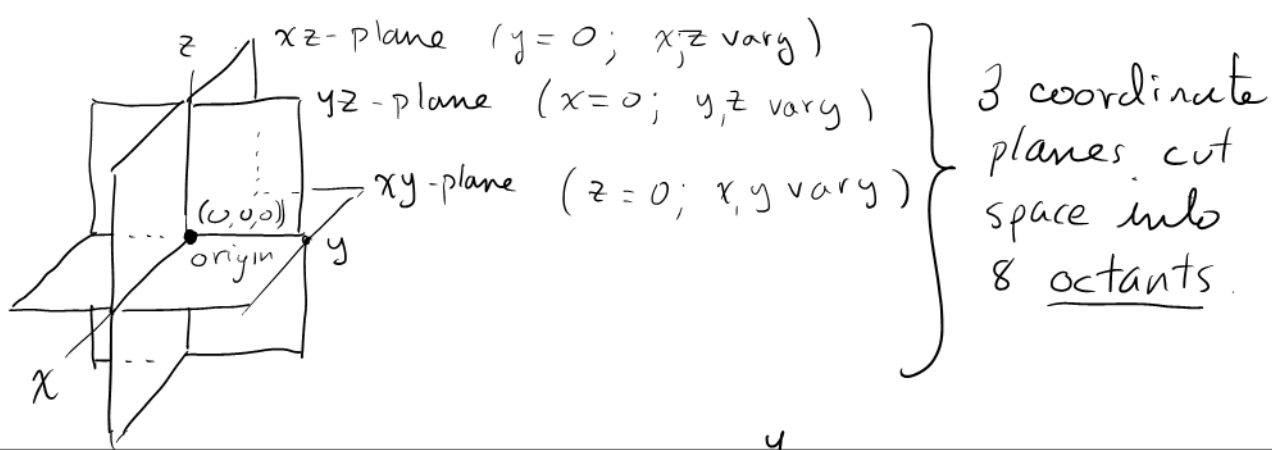 z
xz-plane (y = 0; x,z vary)
yz-plane (x=0; y,z vary)
xy-plane (z=0; x,y vary)
(0,0,0)
origin
y
x
3 coordinate
planes cut
space into
8 octants.
y